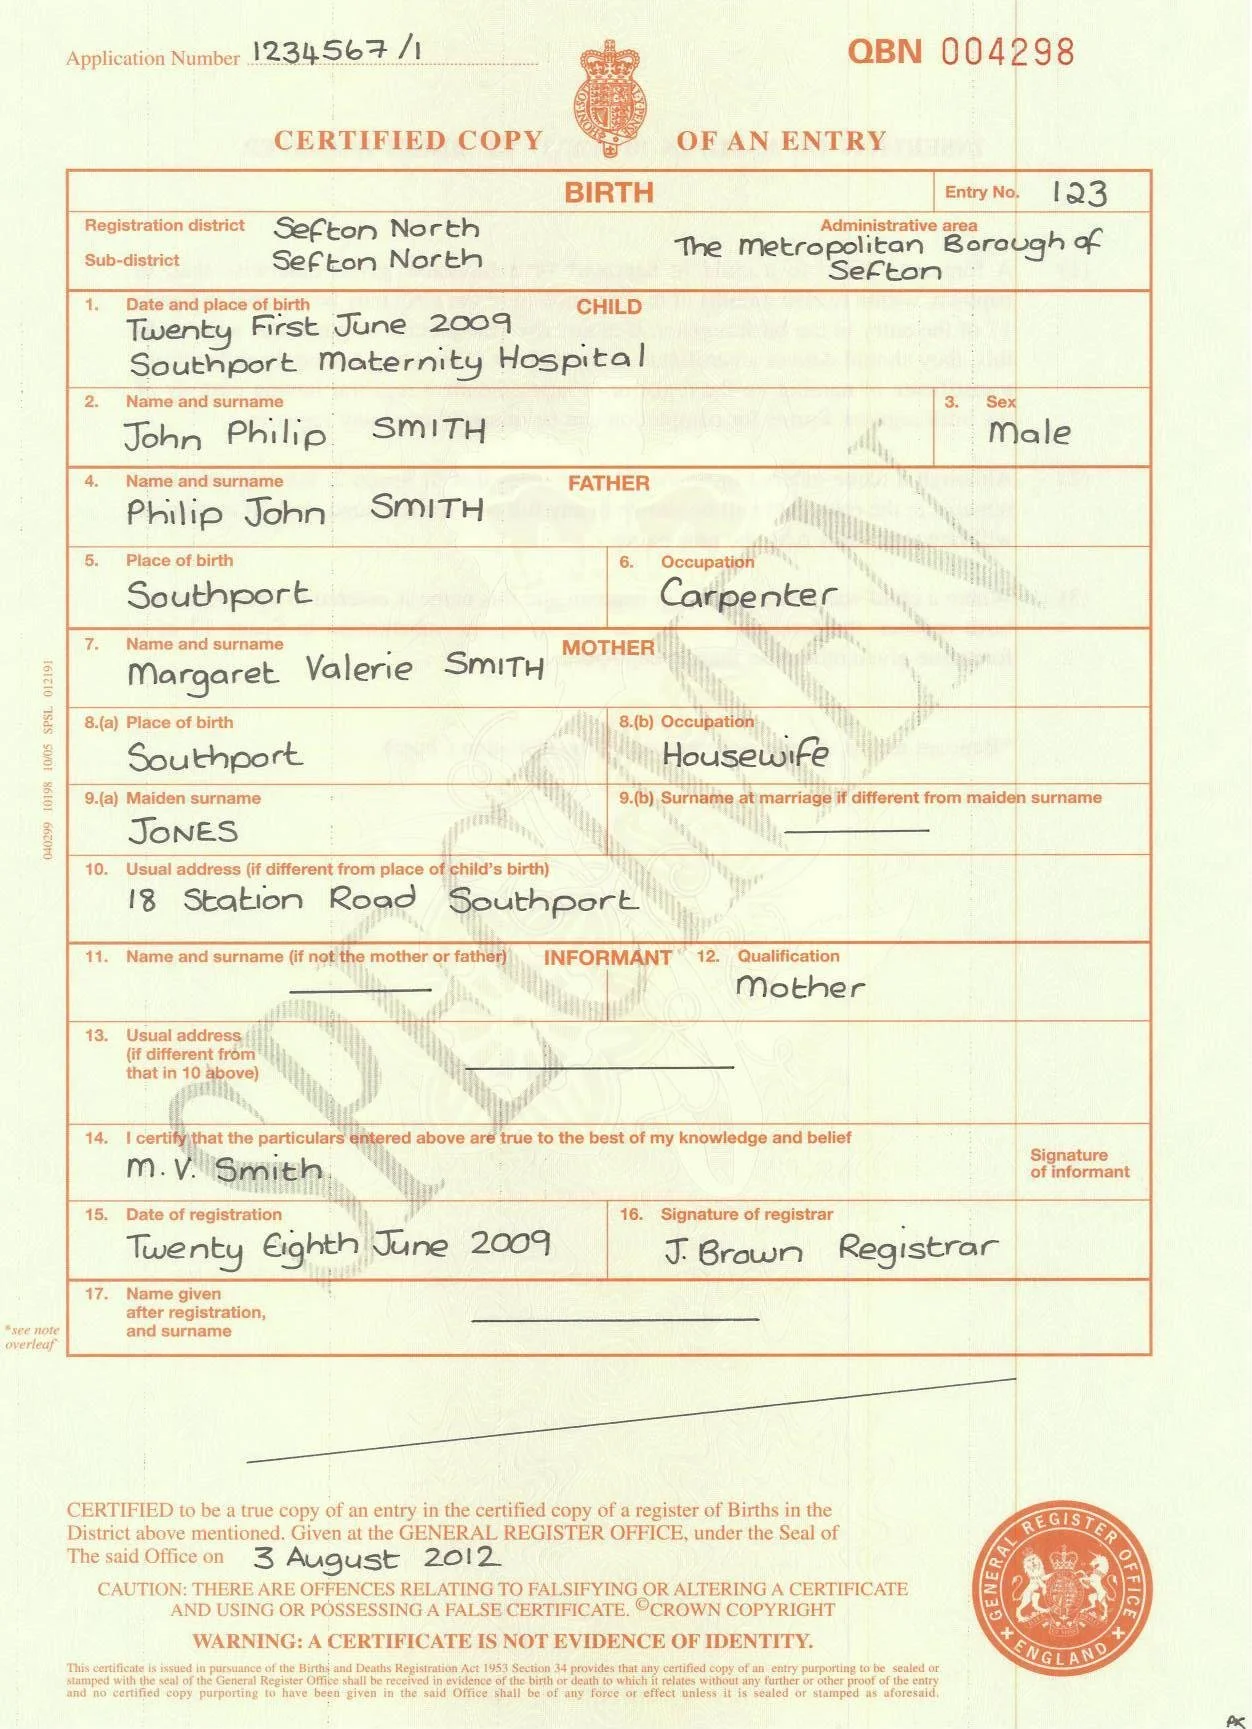 Application Number 1234567/1
QBN 004298
CERTIFIED COPY OF AN ENTRY
BIRTH
Entry No. 123
Registration district Sefton North
Sub-district Sefton North
Administrative area
The Metropolitan Borough of
Sefton
1. Date and place of birth CHILD
Twenty First June 2009
Southport Maternity Hospital
2. Name and surname
John Philip SMITH
3. Sex
Male
4. Name and surname FATHER
Philip John SMITH
5. Place of birth
Southport
6. Occupation
Carpenter
7. Name and surname MOTHER
Margaret Valerie SMITH
8.(a) Place of birth
Southport
8.(b) Occupation
Housewife
9.(a) Maiden surname
JONES
9.(b) Surname at marriage if different from maiden surname
10. Usual address (if different from place of child's birth)
18 Station Road Southport
11. Name and surname (if not the mother or father) INFORMANT
12. Qualification
Mother
13. Usual address
(if different from
that in 10 above)
14. I certify that the particulars entered above are true to the best of my knowledge and belief
M. V. Smith
Signature
of informant
15. Date of registration
Twenty Eighth June 2009
16. Signature of registrar
J. Brown Registrar
17. Name given
after registration,
and surname
*see note
overleaf
040299 10198 10/05 SPSL 012191
SPECIMEN
CERTIFIED to be a true copy of an entry in the certified copy of a register of Births in the
District above mentioned. Given at the GENERAL REGISTER OFFICE, under the Seal of
The said Office on 3 August 2012
CAUTION: THERE ARE OFFENCES RELATING TO FALSIFYING OR ALTERING A CERTIFICATE
AND USING OR POSSESSING A FALSE CERTIFICATE. ©CROWN COPYRIGHT
WARNING: A CERTIFICATE IS NOT EVIDENCE OF IDENTITY.
This certificate is issued in pursuance of the Births and Deaths Registration Act 1953 Section 34 provides that any certified copy of an entry purporting to be sealed or
stamped with the seal of the General Register Office shall be received in evidence of the birth or death to which it relates without any further or other proof of the entry
and no certified copy purporting to have been given in the said Office shall be of any force or effect unless it is sealed or stamped as aforesaid.
GENERAL REGISTER OFFICE
ENGLAND